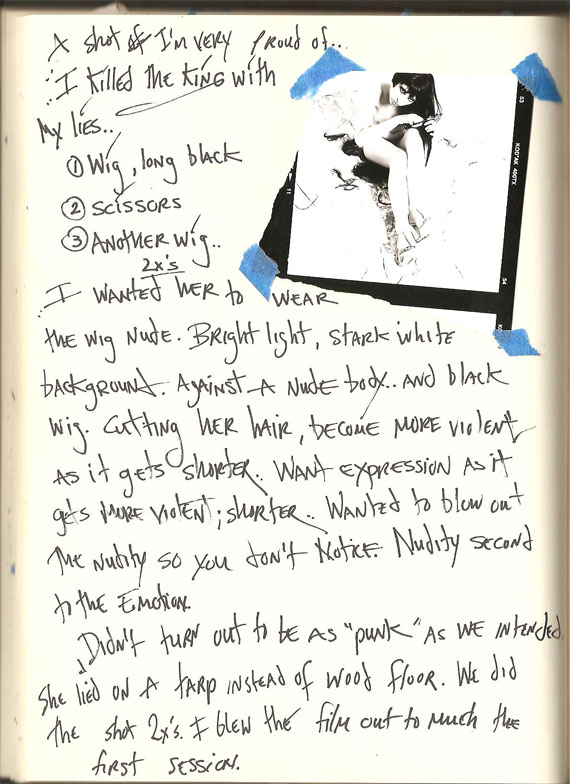 A shot of I'm very proud of..
I killed the king with
My lies..
① Wig, long black
② scissors
③ ANOTHER wig..
2x's
I WANTED HER to WEAR
the wig Nude. Bright light, stark white
background. Against A Nude body.. AND black
wig. Cutting HER HAIR, become MORE violent
AS it gets shorter.. WANT EXPRESSION AS it
gets MORE violent; shorter.. WANTED to blow out
The Nudity so you don't Notice. Nudity second
to the Emotion.
Didn't turn out to be AS "punk" AS WE intended
She lied ON A tarp instead of wood floor. We did
the shot 2x's. I blew the film out to much the
first session.
KODAK 400TX
53
54
11